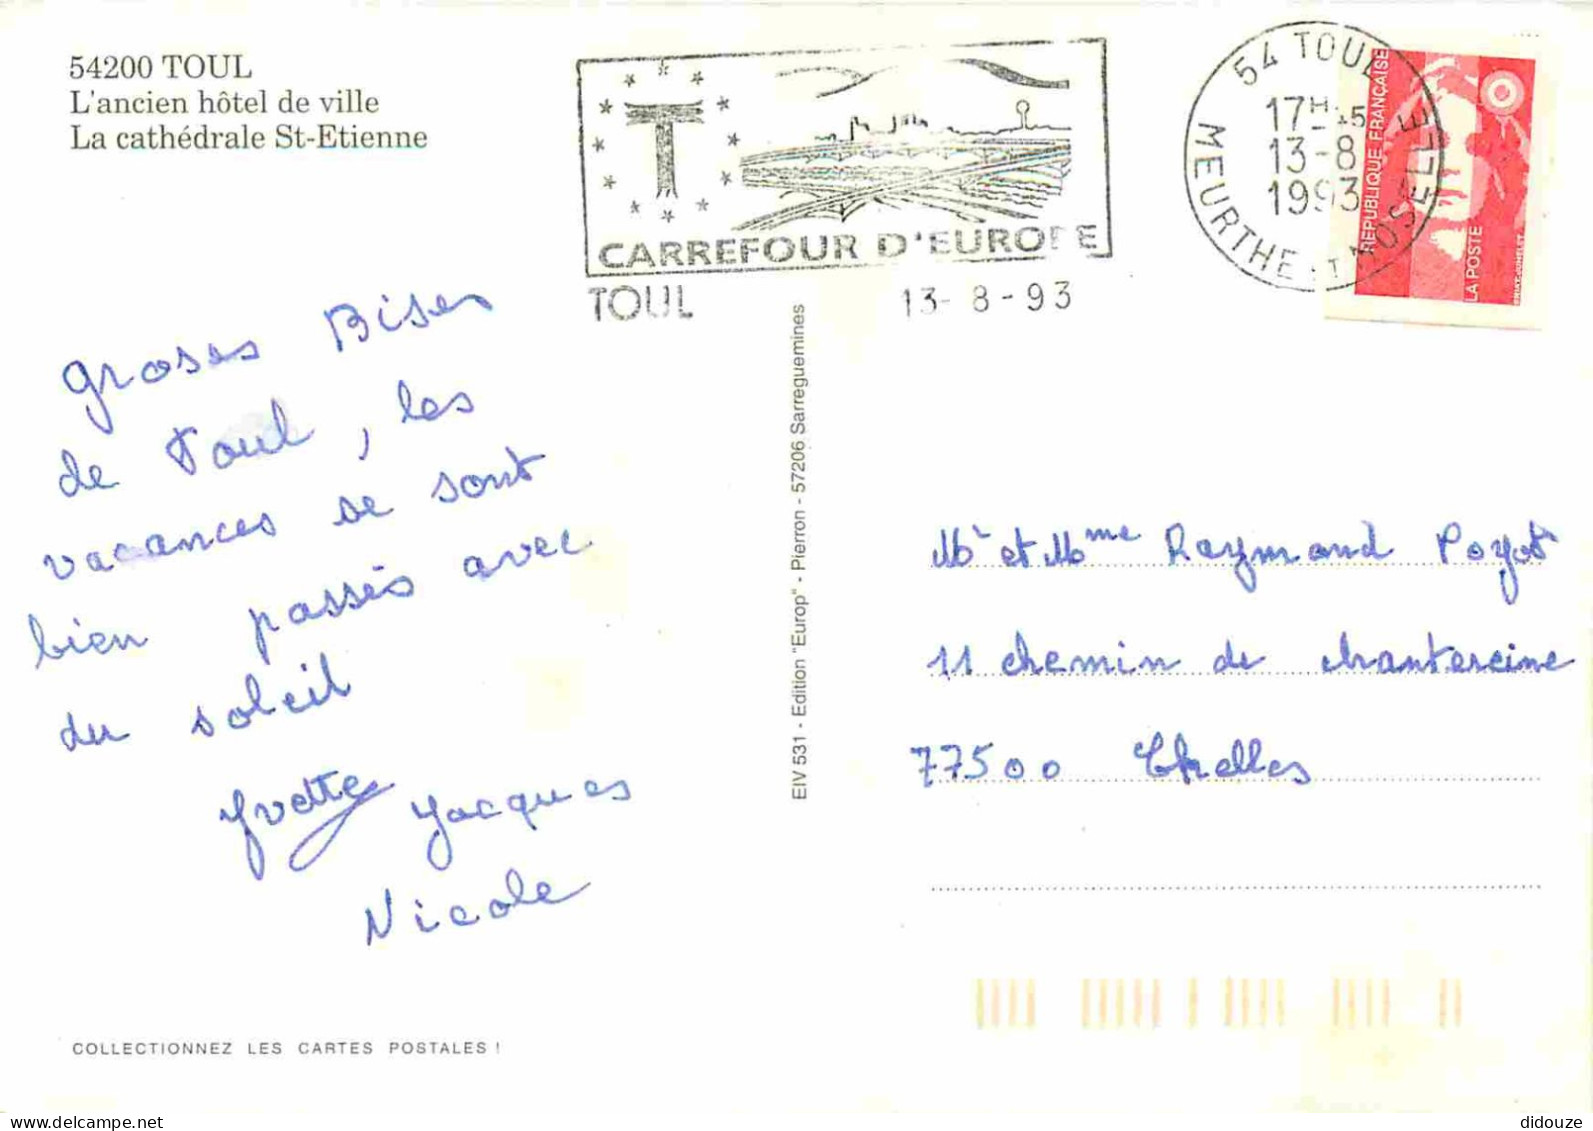 54200 TOUL
L'ancien hôtel de ville
La cathédrale St-Etienne
T
CARREFOUR D'EUROPE
TOUL 13-8-93
54 TOUL
17H-45
13-8
1993
MEURTHE ET MOSELLE
REPUBLIQUE FRANÇAISE
LA POSTE
groses Bises
de Toul, les
vacances se sont
bien passés avec
du soleil
Yvette Jacques
Nicole
EIV 531 - Edition "Europ" - Pierron - 57206 Sarreguemines
Mr et Mme Raymond Poyot
11 chemin de chantereine
77500 Chelles
COLLECTIONNEZ LES CARTES POSTALES !
delcampe.net
didouze